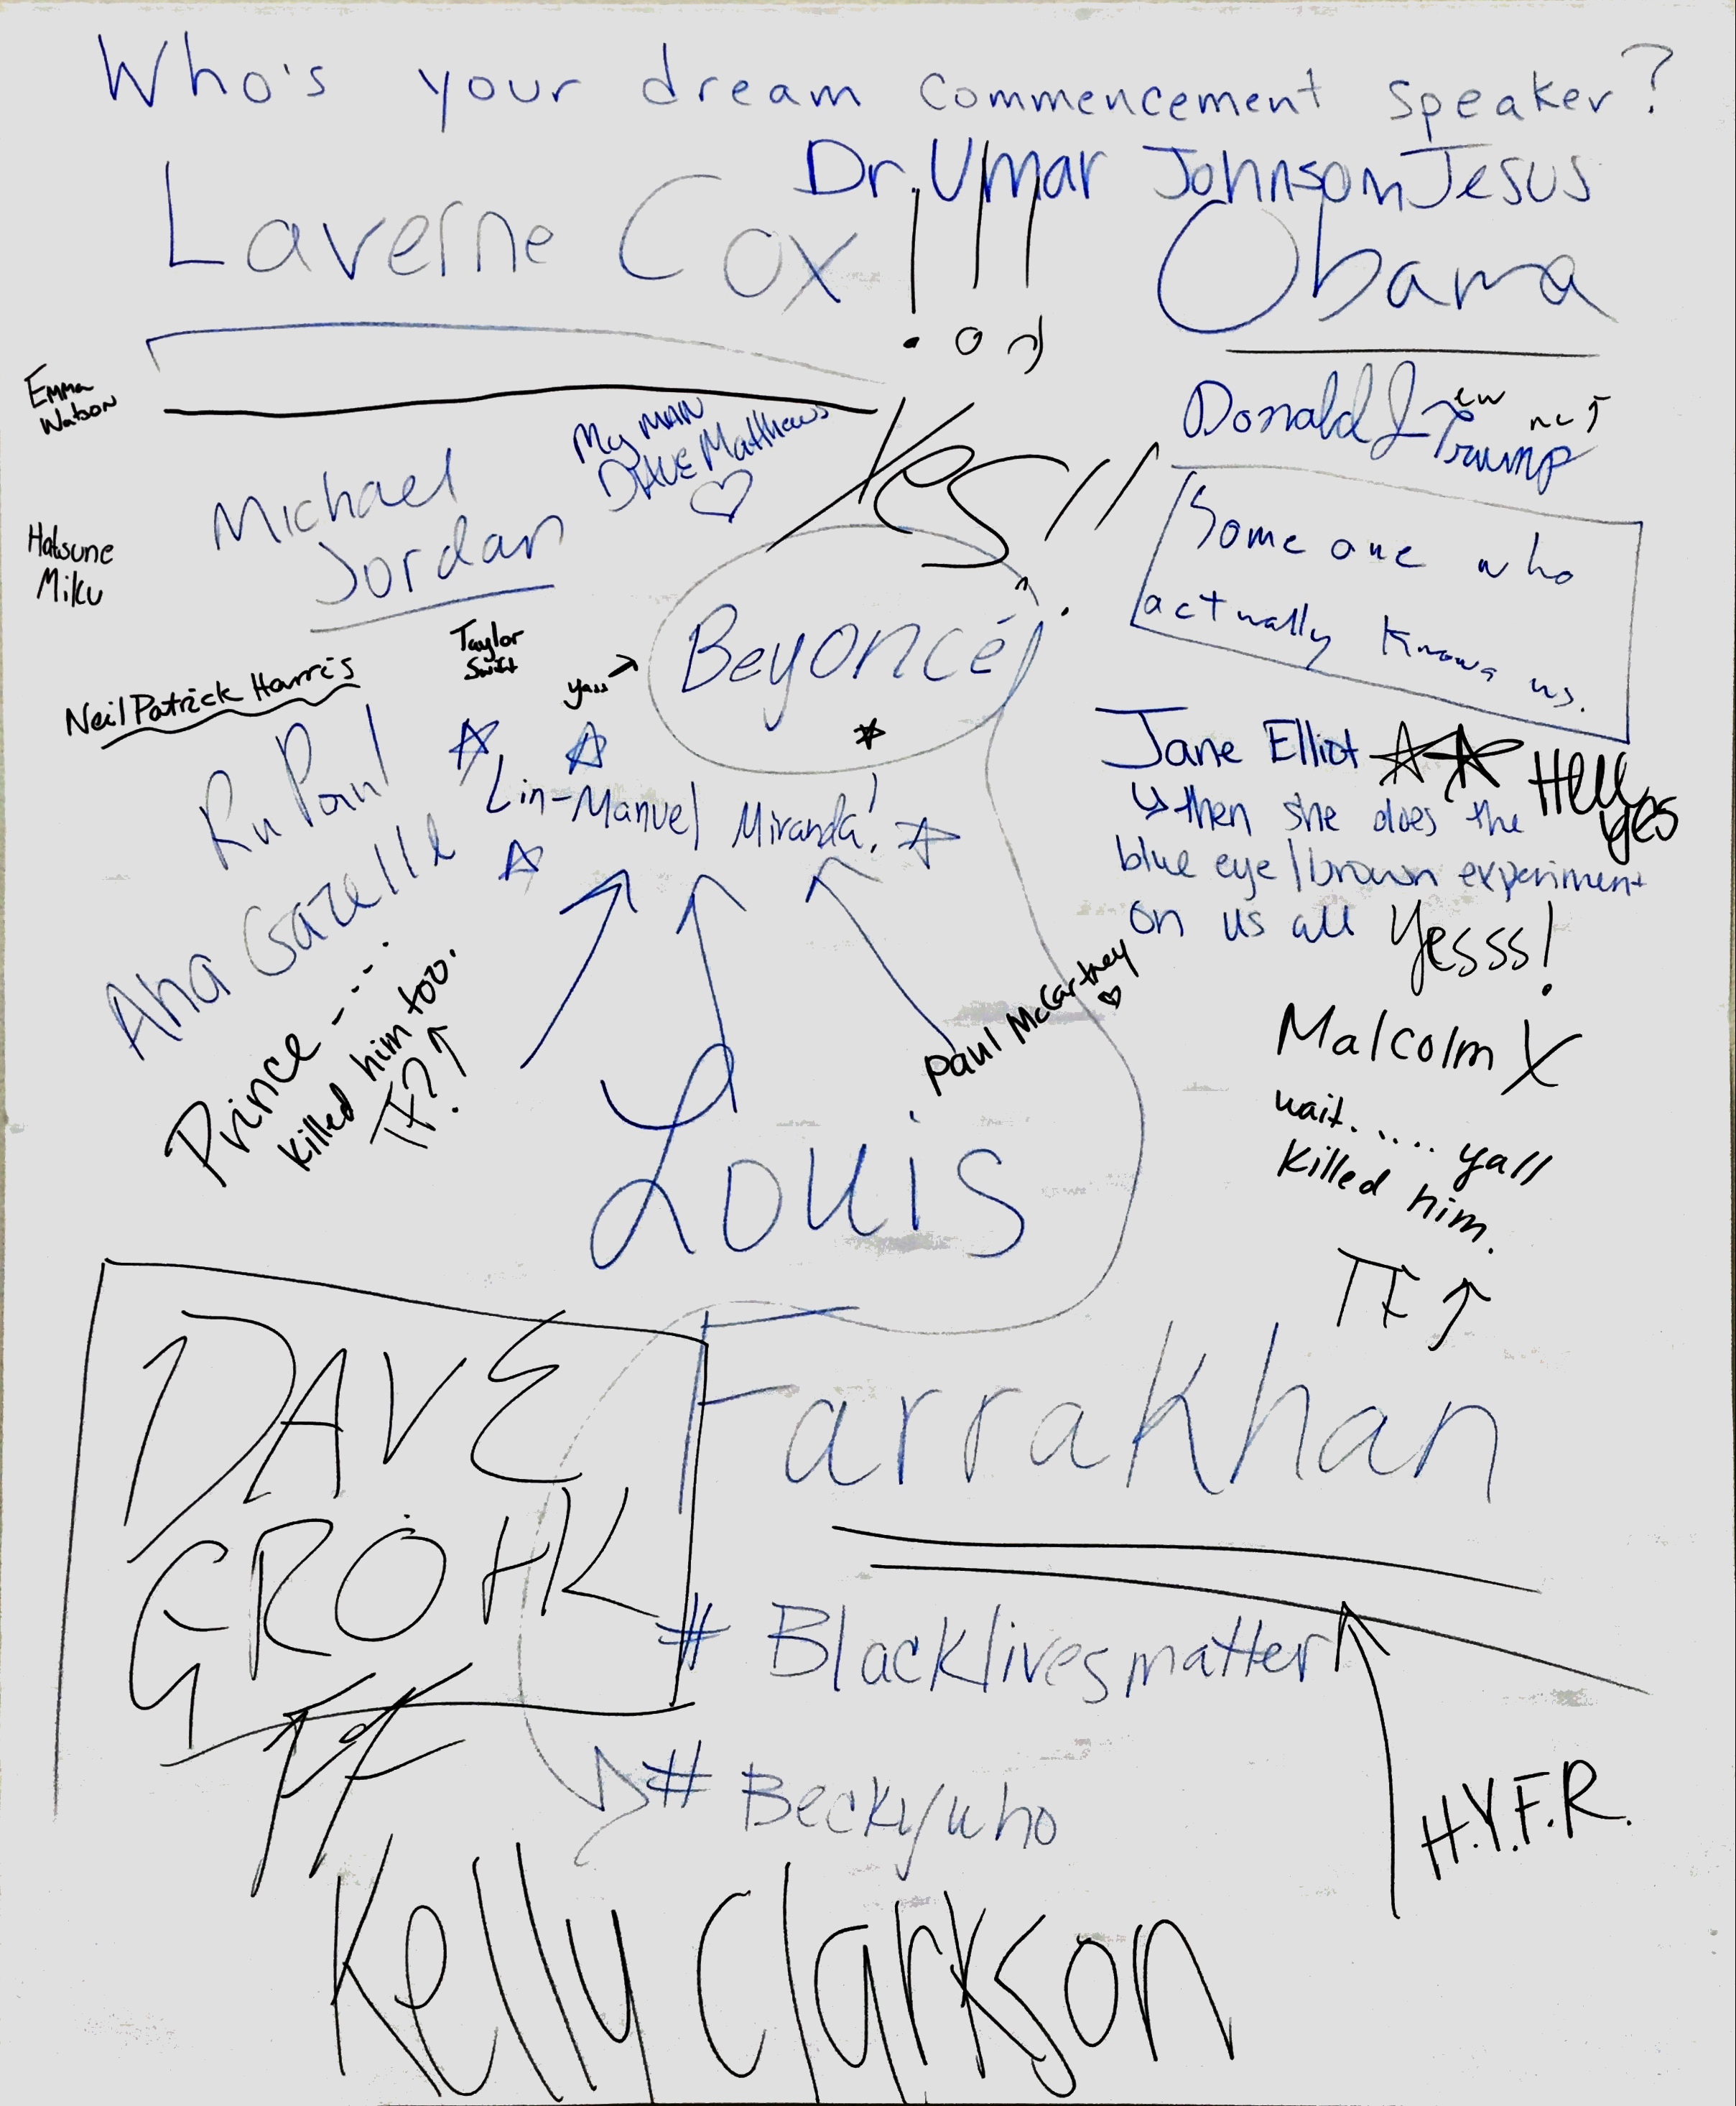 Who's your dream commencement speaker?
Dr. Umar Johnson Jesus
Laverne Cox!!!
Obama
Emma
Watson
My MAN
DAVE Matthews
Yes!!
Donald J Trump
ew
Michael
Jordan
Some one who
actually knows us.
Hatsune
Miku
Taylor
Swift
yass →
Beyoncé!
Neil Patrick Harris
Ru Paul
Lin-Manuel Miranda!
Jane Elliot
Hell
yes
↳ then she does the
blue eye/brown experiment
on us all Yesss!
Aha Gazelle
Prince - - . . .
Killed him too.
TF? ↑
Paul McCartney
Malcolm X
wait...... yall
Killed him.
TF ↑
Louis
Farrakhan
DAVE
GROHL
FF
# Blacklivesmatter
# Beckywho
H.Y.F.R.
Kelly Clarkson